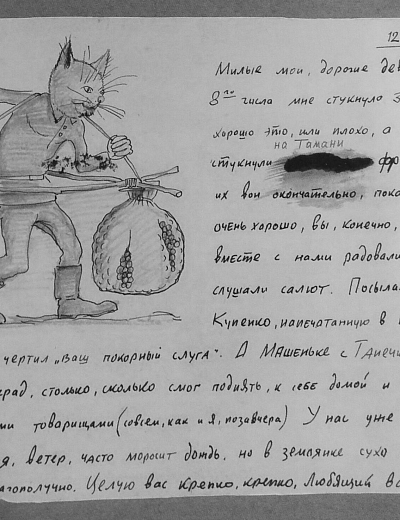 12
Милые мои, дорогие дев
8го числа мне стукнуло 3
хорошо это, или плохо, а
на Тамани
стукнули фр
их вон окончательно, пока
очень хорошо, вы, конечно,
вместе с нами радовали
слушали салют. Посыла
Купенко, напечатанную в
чертил „Ваш покорный слуга". А Машеньке с Танечк
град, столько, сколько смог поднять, к себе домой и
ми товарищами (совсем, как и я, позавчера) У нас уже
я, ветер, часто моросит дождь, но в землянке сухо
агополучно. Целую вас крепко, крепко, Любящий Ва